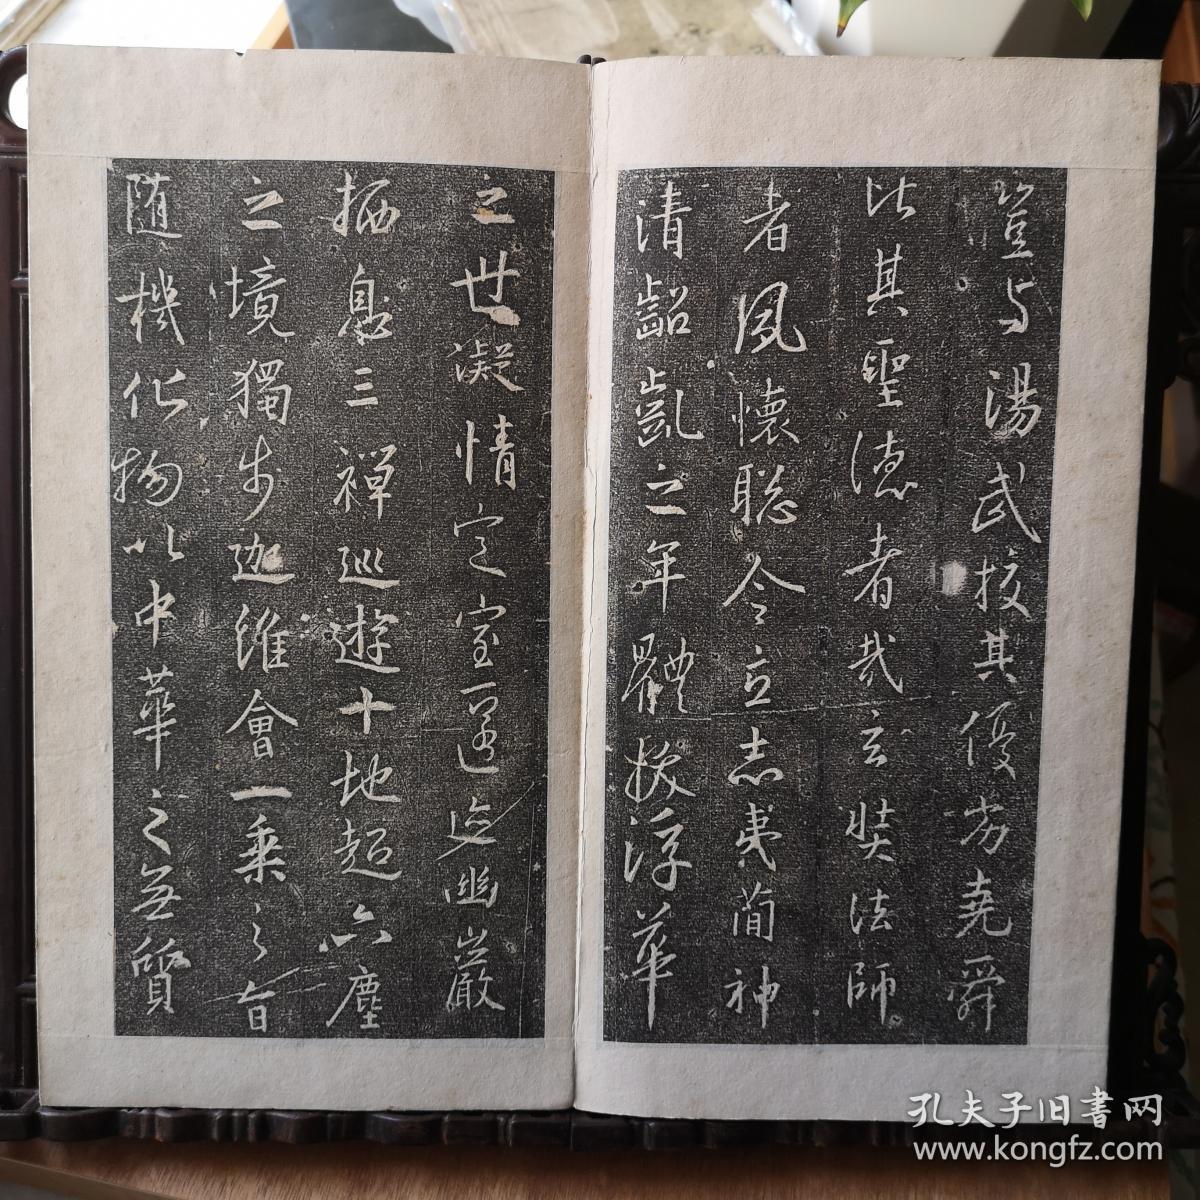 豈与湯武挍其優劣堯舜
比其聖德者哉玄奘法師
者夙懷聡令立志夷簡神
清齠齔之年體拔浮華
之世凝情定室匿迹幽巖
栖息三禪巡遊十地超六塵
之境獨步迦維會一乘之旨
随機化物以中華之無質
孔夫子旧書网
www.kongfz.com